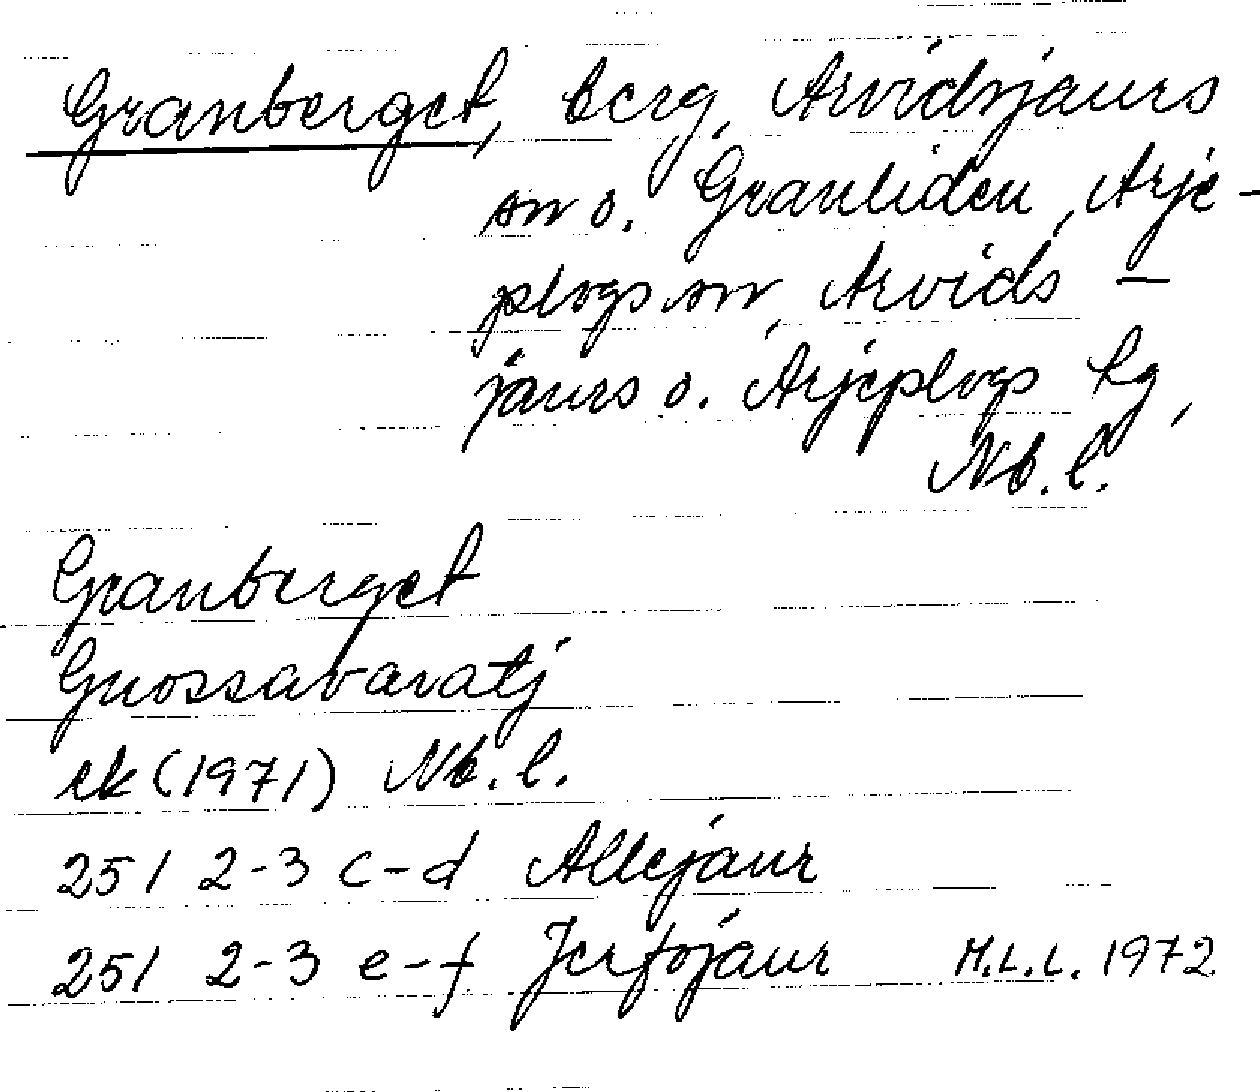 Granberget, berg, Arvidsjaurs
sn o. Granliden, Arje-
plogs sn, Arvids-
jaurs o. Arjeplogs lg,
Nb.l.
Granberget
Guossavaratj
ek (1971) Nb.l.
25I 2-3 c-d Allejaur
25I 2-3 e-f Jerfojaur M.L.L. 1972